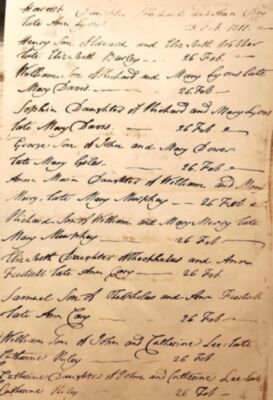 Harriet Daughter Richard and Ann
late Ann Lyons 25 Feb 1811
Henry Son Edward and Eliz Beth Webber
late Eliz Beth Burley 26 Feb
William Son Richard and Mary Lyons late
Mary Davis 26 Feb
Sophia Daughter of Richard and Mary Lyons
late Mary Davis 26 Feb
George Son of John and Mary Dover
late Mary Giles 26 Feb
Anna Maria Daughter of William and Mary
Mercy late Mary Murphey 26 Feb
Richard Son of William and Mary Mercy late
Mary Murphey 26 Feb
Eliz Beth Daughter Theophelus and Ann
late Ann Cory 26 Feb
Samuel Son of Theophelus and Ann
late Ann Cory 26 Feb
William Son of John and Catherine Lee late
Catherine Kiley 26 Feb
Catherine Daughter of John and Catherine Lee late
Catherine Kiley 26 Feb